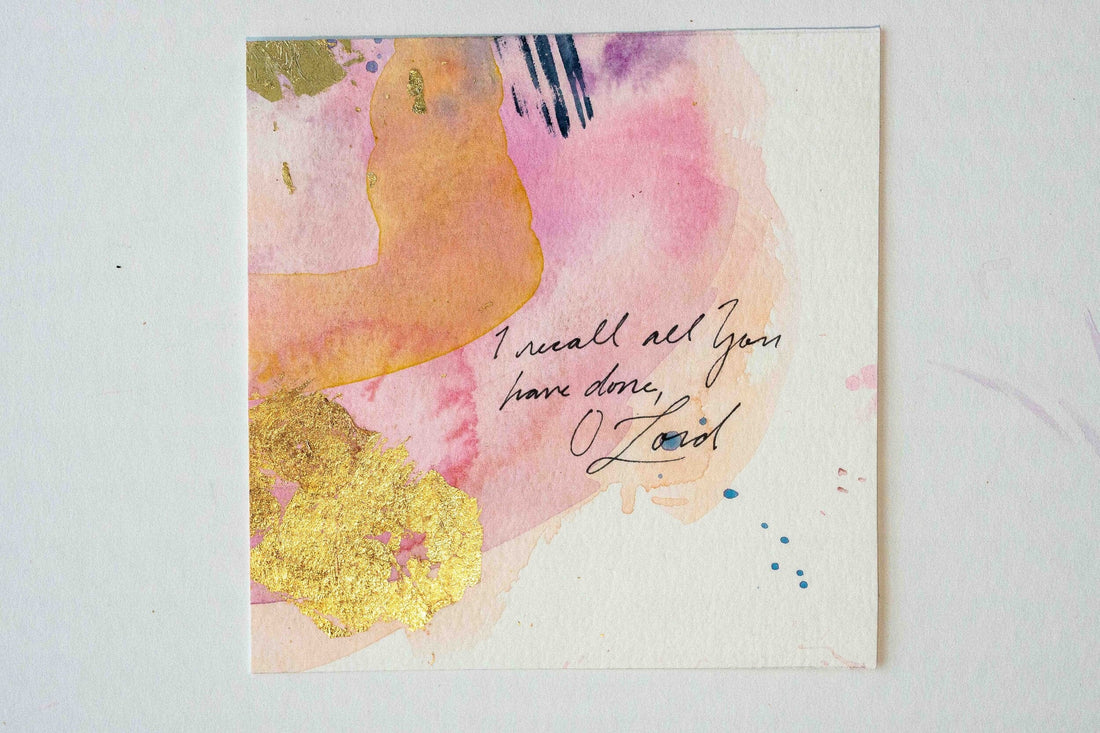 I recall all You
have done,
O Lord